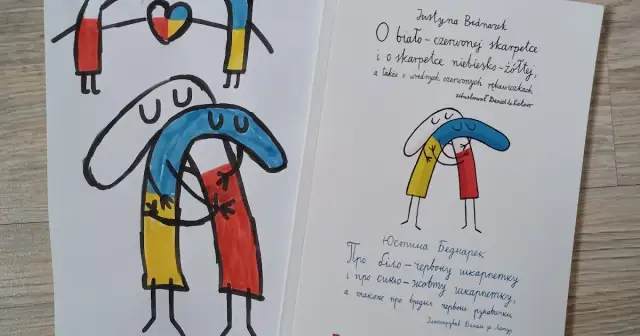 Justyna Bednarek
O biało-czerwonej skarpetce
i o skarpetce niebiesko-żółtej,
a także o wrednych czerwonych rękawiczkach
zilustrował Daniel de Latour
Юстина Беднарек
Про біло-червону шкарпетку
і про синьо-жовту шкарпетку,
а також про вредні червоні рукавички